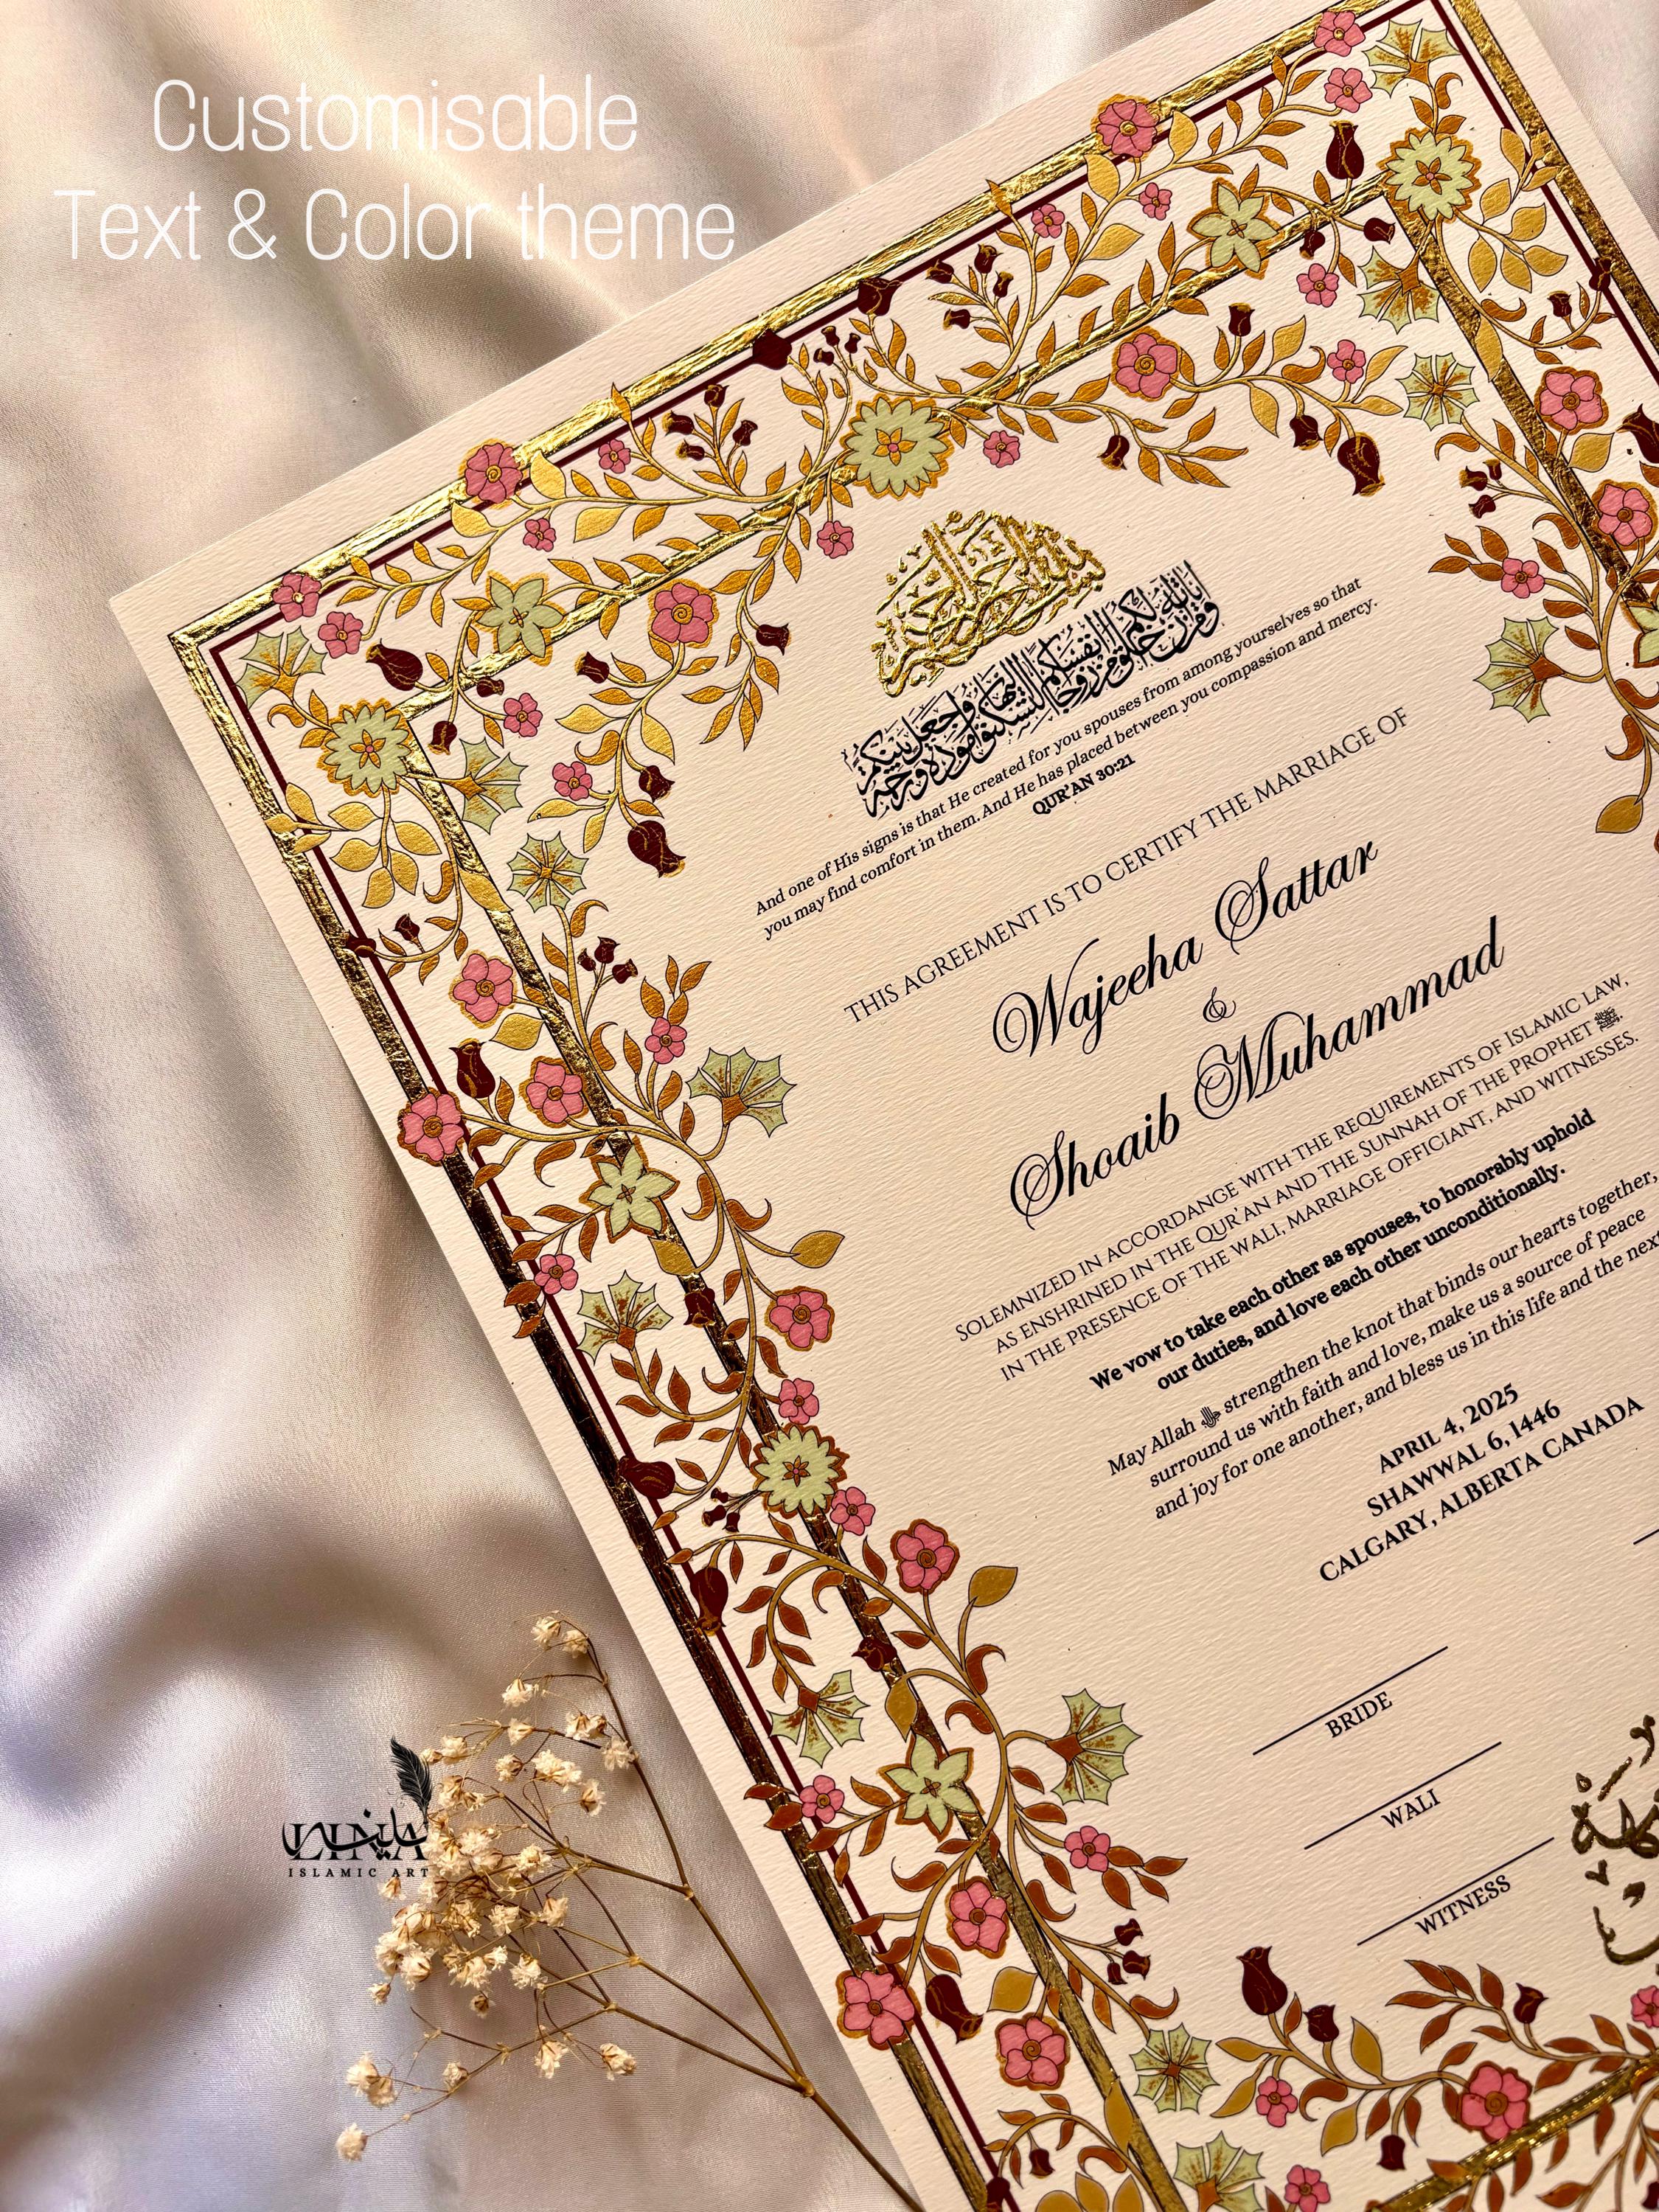 Customisable
Text & Color theme
بسم الله الرحمن الرحيم
ومن آياته أن خلق لكم من أنفسكم أزواجا لتسكنوا إليها وجعل بينكم مودة ورحمة
And one of His signs is that He created for you spouses from among yourselves so that
you may find comfort in them. And He has placed between you compassion and mercy.
QUR'AN 30:21
THIS AGREEMENT IS TO CERTIFY THE MARRIAGE OF
Wajeeha Sattar
&
Shoaib Muhammad
SOLEMNIZED IN ACCORDANCE WITH THE REQUIREMENTS OF ISLAMIC LAW,
AS ENSHRINED IN THE QUR'AN AND THE SUNNAH OF THE PROPHET ﷺ.
IN THE PRESENCE OF THE WALI, MARRIAGE OFFICIANT, AND WITNESSES.
We vow to take each other as spouses, to honorably uphold
our duties, and love each other unconditionally.
May Allah ﷻ strengthen the knot that binds our hearts together,
surround us with faith and love, make us a source of peace
and joy for one another, and bless us in this life and the next
APRIL 4, 2025
SHAWWAL 6, 1446
CALGARY, ALBERTA CANADA
BRIDE
WALI
WITNESS
ISLAMIC ART